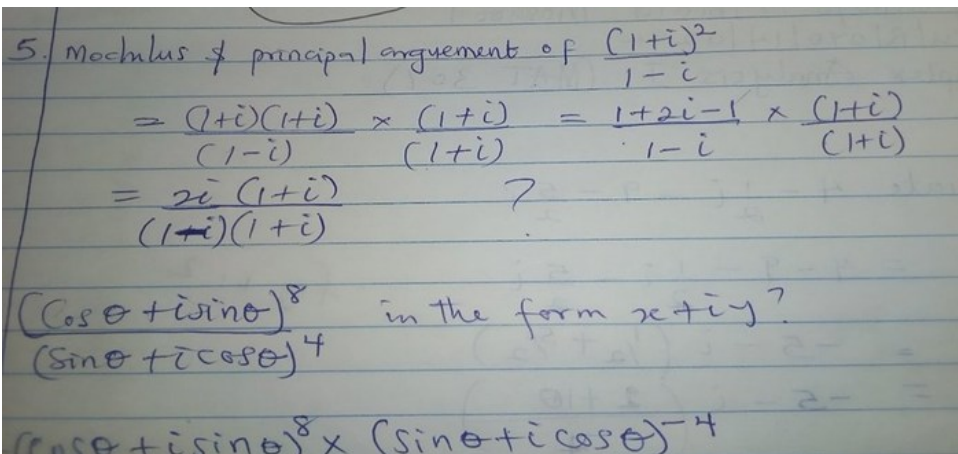 5. Mochulus & principal arguement of (1+i)² / 1-i
= (1+i)(1+i) / (1-i) × (1+i) / (1+i) = 1+2i-1 / 1-i × (1+i) / (1+i)
= 2i (1+i) / (1-i)(1+i) ?
(Cosθ + isinθ)⁸ / (Sinθ + icosθ)⁴ in the form x+iy?
(cosθ + isinθ)⁸ × (sinθ + icosθ)⁻⁴